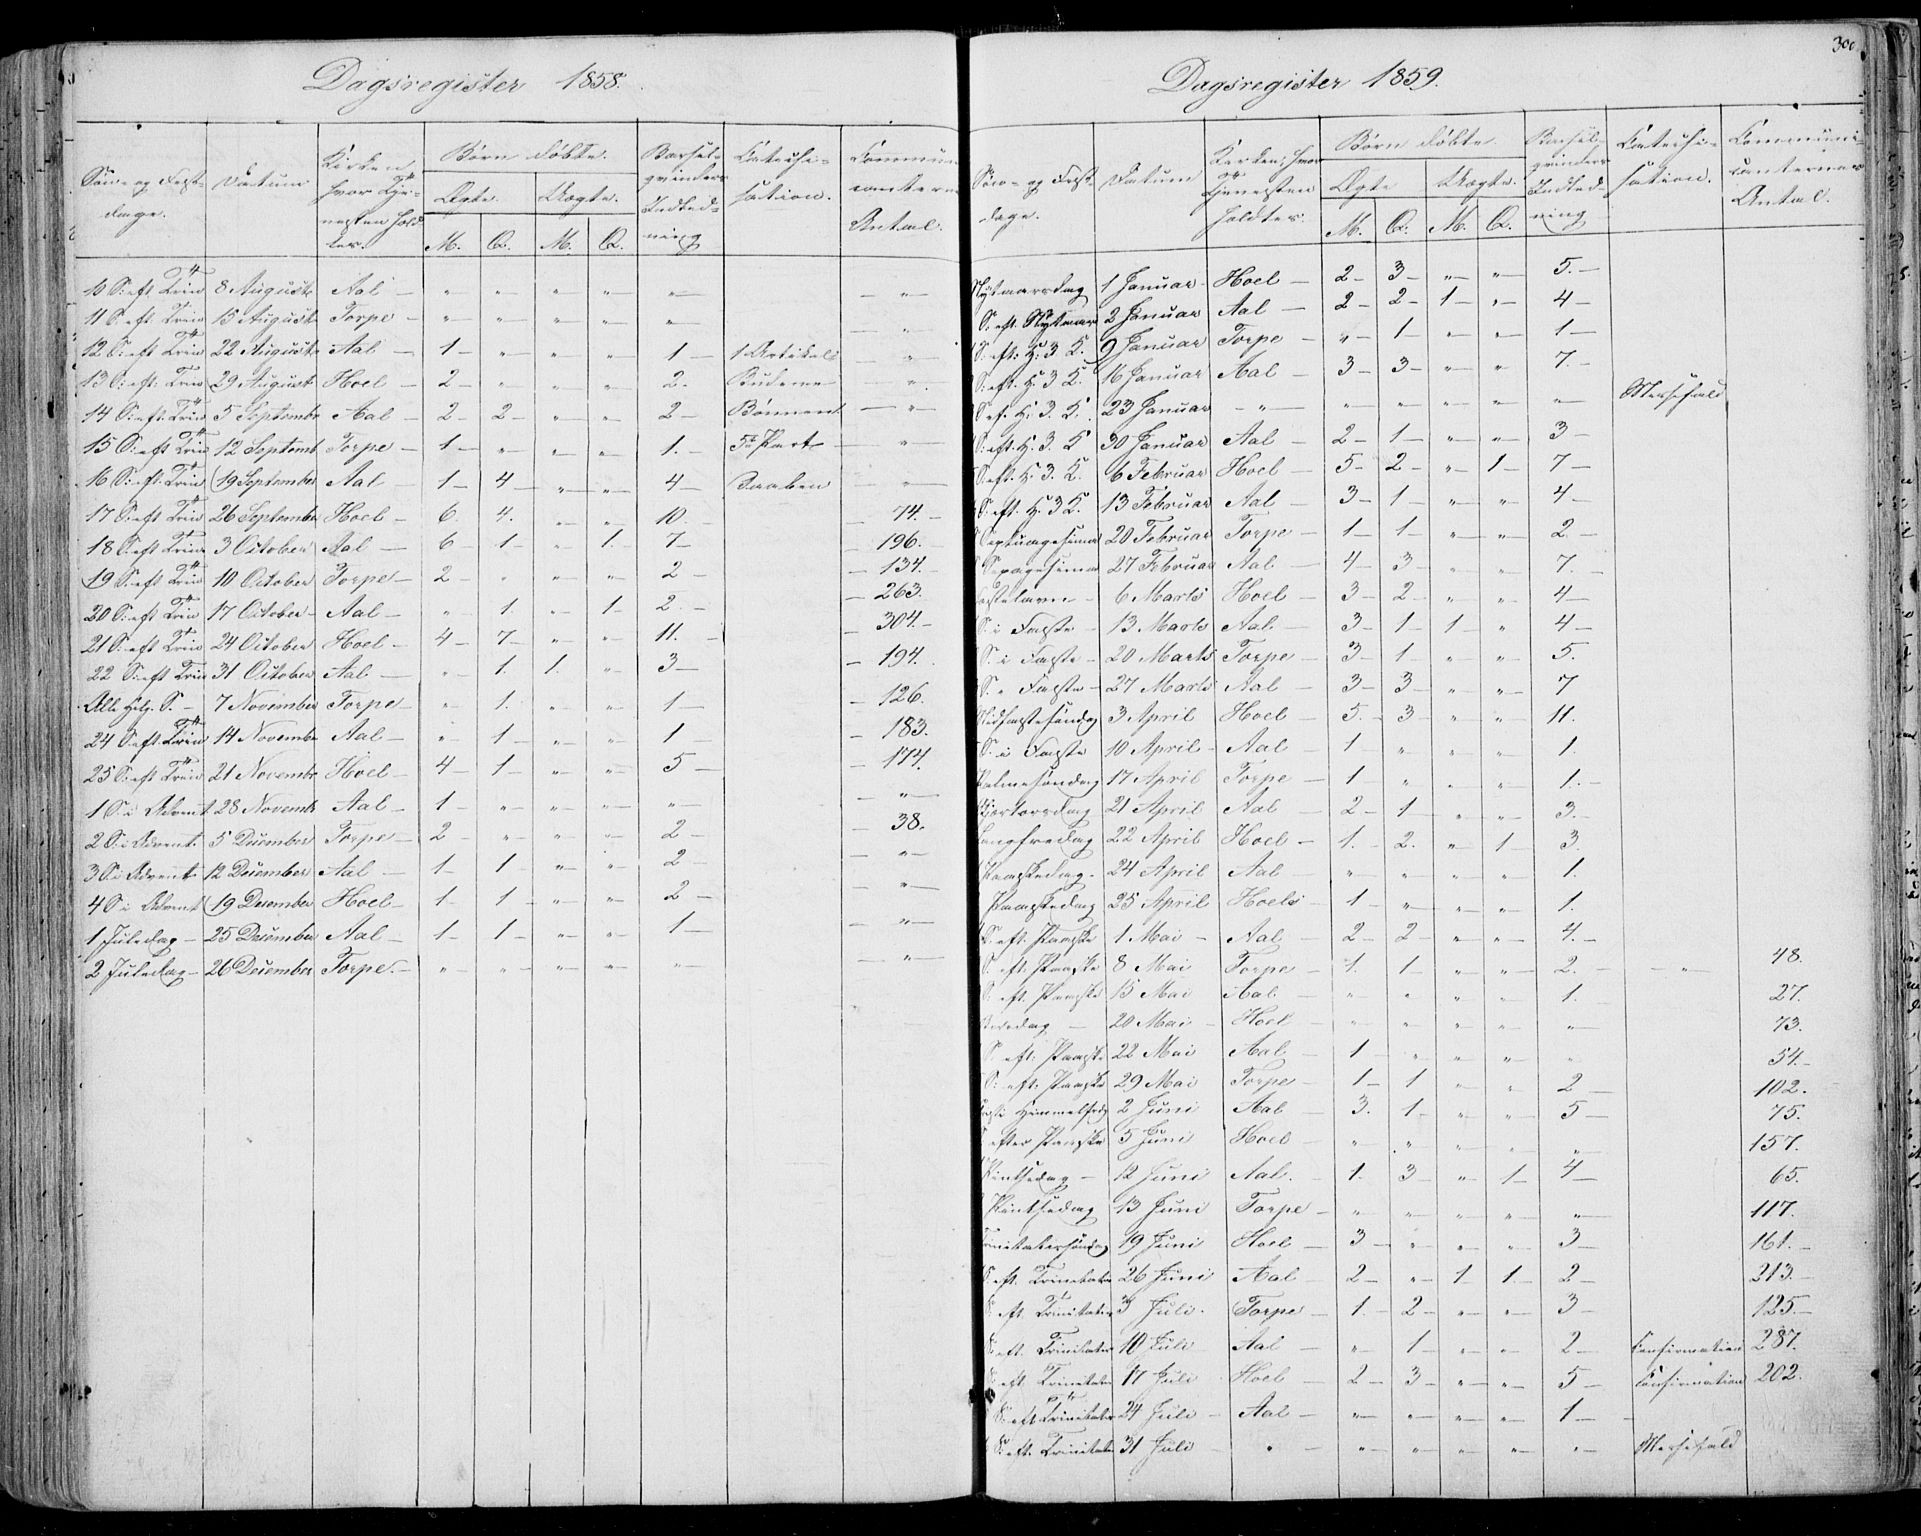 300
Dagsregister 1858.
Søn- og Fest-dage. Datum Kirken hvor Tjenesten holdtes. Børn døbte. Ægte. Uægte. M. Q. M. Q. Barselqvinders Indledning Catechisation. Communicanternes Antal.
10 S: eft Trin 8 August Aal — " " " " " "
11 S: eft. Trin 15 August Torpe — " " " " " "
12 S: eft Trin 22 August Aal — 1 — " " " 1 — 1 Artikel "
13 S: eft: Trin 29 August Hoel — 2 — " " " 2. Budene "
14 S: eft: Trin 5 Septembr Aal — 2 — 2 — " " 2 — Bønnen "
15 S: eft Trin 12 Septemb Torpe — 1 — " " " 1. — 5te Part "
16 S: eft. Trin 19 September Aal — 1 — 4 — " " 4 — Daaben "
17 S: eft Trin 26 Septembr Hoel — 6. 4. " " 10. 74. —
18 S: eft Trin 3 October Aal — 6 — 1 — " 1. 7 — 196. —
19 S: eft Trin 10 October Torpe — 2 — " " " 2 — 134. —
20 S: eft Trin 17 October — Aal — " 1. " 1. 2. — 263.
21 S: eft Trin 24 October Hoel — 4 — 7 — " " 11. — 304. —
22 S: eft Trin 31 October Aal — " 1. 1. " 3 — 194.
Alle Helg. S. — 7 November Torpe — " 1. " " 1 — 126.
24 S: eft Trin 14 Novembr Aal — " 1 — " " 1 183.
25 S: eft Trin 21 Novembr Hoel — 4 — 1 — " " 5 — 174.
1 S: i Advent 28 Novemb Aal — 1 — " " " " "
2 S: i Advent. 5 December Torpe — 2 — " " " 2 — 38.
3 S: i Advent 12 December Aal — 1 — 1 " " 2 — "
4 S: i Advent 19 December Hoel — 1 — 1 — " " 2 — "
1 Juledag — 25 December Aal — 1 — 1 — " " 1 — "
2 Juledag — 26 December Torpe. — " " " " " "
Dagsregister 1859.
Søn- og Fest-dage. Datum Kirken, hvor Tjenesten holdtes. Børn døbte. Ægte Uægte. M. Q. M. Q. Barselqvinders Indledning Catechisation. Communicanternes Antal.
Nytaarsdag 1 Januar Hoel — 2 — 3 — " " 5. —
S. eft Nytaar 2 Januar Aal — 2 — 2 — 1 — " 4 —
S: eft: H. 3 K. 9 Januar Torpe — " 1 — " " 1 —
S: eft. H. 3 K. 16 Januar Aal — 3 — 3 — " " 7. —
S: ef. H. 3. K. 23 Januar — " — " " " " " Messefald
S: eft. H. 3. K 30 Januar Aal — 2 — 1 — " " 3 —
S: eft. H. 3. K. 6 Februar Hoel — 5 — 2 — " 1 — 7 —
S: eft. H. 3 K. 13 Februar Aal — 3 — 1 — " " 4 —
Septuagesima 20 Februar Torpe — 1 — 1 — " " 2. —
Sexagesima 27 Februar Aal — 4 — 3 — " " 7. —
Fastelavn — 6 Marts Hoel — 3 — 2 — " " 4 —
S: i Faste — 13 Marts Aal. — 3 — 1 — 1 — " 4 —
S. i Faste — 20 Marts Torpe — 3 — 1 — " " 5.
S. i Faste — 27 Marts Aal — 3 — 3 — " " 7
Midfastesøndag 3 April Hoel — 5. — 3 — " " 11.
S. i Faste 10 April — Aal — 1 — " " " 1.
Palmesøndag 17 April Torpe — 1 — " " " 1. —
Skjertorsdag 21 April Aal — 2 — 1 — " " 3. —
Langfredag 22 April Hoel — 1. — 2. " 1 — 3.
Paaskedag — 24 April Aal — " " " " 1.
Paaskedag 25 April Hoels — 1 — " " " 1.
S: eft. Paaske 1 Mai — Aal — 2 — 2 — " " 4. —
S: eft Paaske 8 Mai Torpe — 1. 1 — " " 2. " 48.
S: eft. Paaske 15 Mai Aal — " " " " 1. 27.
Bededag — 20 Mai — Hoel — " " " " " 73.
S. eft: Paaske 22 Mai Aal — 1 — " " " " 54. —
S: eft: Paaske 29 Mai Torpe — 1 — 1 — " " 2 — 102.
Christi Himmelfrdg 2 Juni Aal — 3. 1 — " " 5 — 75.
S efter Paaske 5 Juni Hoel — " " " " " 157.
Pintsedag — 12 Juni Aal. — 1. 3 — " 1 — 4 — 65.
Pintsedag 13 Juni Torpe — " " " " " 117.
Trinitatissøndag 19 Juni Hoel — 3 — " " " 3 — 161. —
S eft. Trinitatis 26 Juni Aal — 2 — " 1 1. 2 — 213. —
S. eft Trinitatis 3 Juli. Torpe — 1 — 2 — " " 3 — 125. —
S: eft. Trinitatis 10 Juli — Aal — " 1 — " " 2 — Confirmation 287.
S: eft Trinitatis 17 Juli Hoel — 2 — 3 — " " 5 — Confirmation 202.
S: eft Trinitatis 24 Juli — Aal — " " " " 1 —
S: eft. Trinitatis 31 Juli " " " " " " Messefald